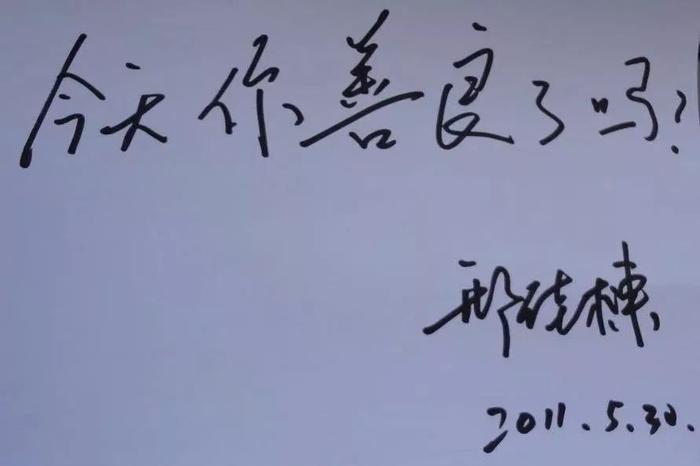 今天你善良了吗?
邢晓栋
2011.5.30.